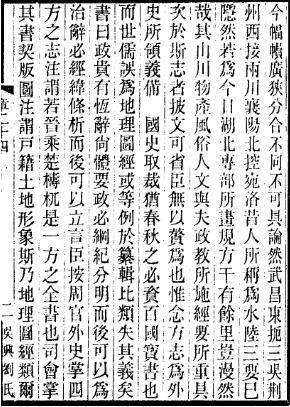 今幅幀廣狹分合不同不可具論然武昌東扼三吳荆
州西接兩川襄陽北控宛洛昔人所稱爲水陸三要已
隱然若爲今日湖北專部所畫規方千有餘里豈漫然
哉其山川物產風俗人文與夫政教所施經要所重具
次於斯志者披文可省臣無以贅爲也惟念方志爲外
史所領義備　國史取裁猶春秋之必資百國寶書也
而世儒誤爲地理圖經或等例於纂輯比類失其義矣
書曰政貴有恆辭尚體要政必綱紀分明而後可以爲
治辭必經緯條析而後可以立言臣按周官外史掌四
方之志注謂若晉乘楚檮杌是一方之全書也司會掌
其書契版圖注謂戸籍土地形象斯乃地理圖經類爾
章二十四
二
吳興劉氏